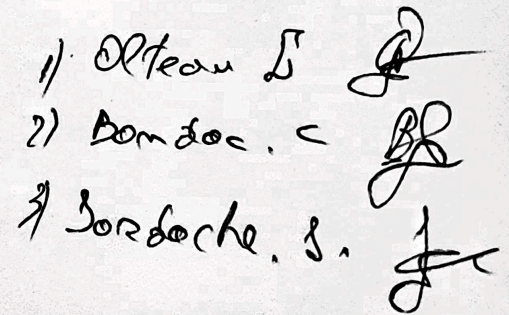 1) Olteanu I
2) Bondoc. C
3) Iordache. I.